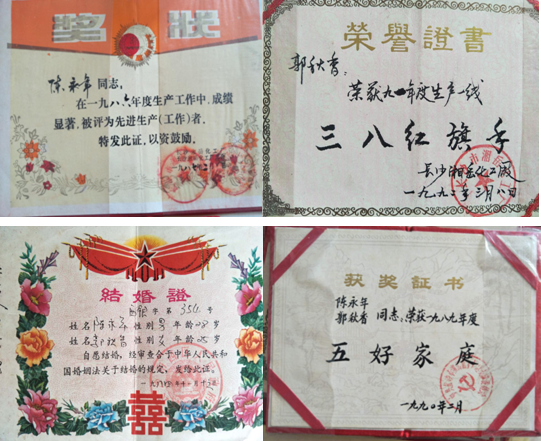 奖状
陈永年同志:
在一九八六年度生产工作中,成绩
显著,被评为先进生产(工作)者,
特发此证,以资鼓励。
荣誉證書
郭秋香:
荣获九一年度生产一线
三八红旗手
长沙湘岳化工厂
一九九二年三月八日
結婚證
字第354号
姓名陈永年性别男年龄28岁
姓名郭秋香性别女年龄25岁
自愿结婚,经审查合于中华人民共和
国婚姻法关于结婚的规定,发给此证。
囍
获奖证书
陈永年
郭秋香 同志:荣获一九八九年度
五好家庭
一九九〇年二月